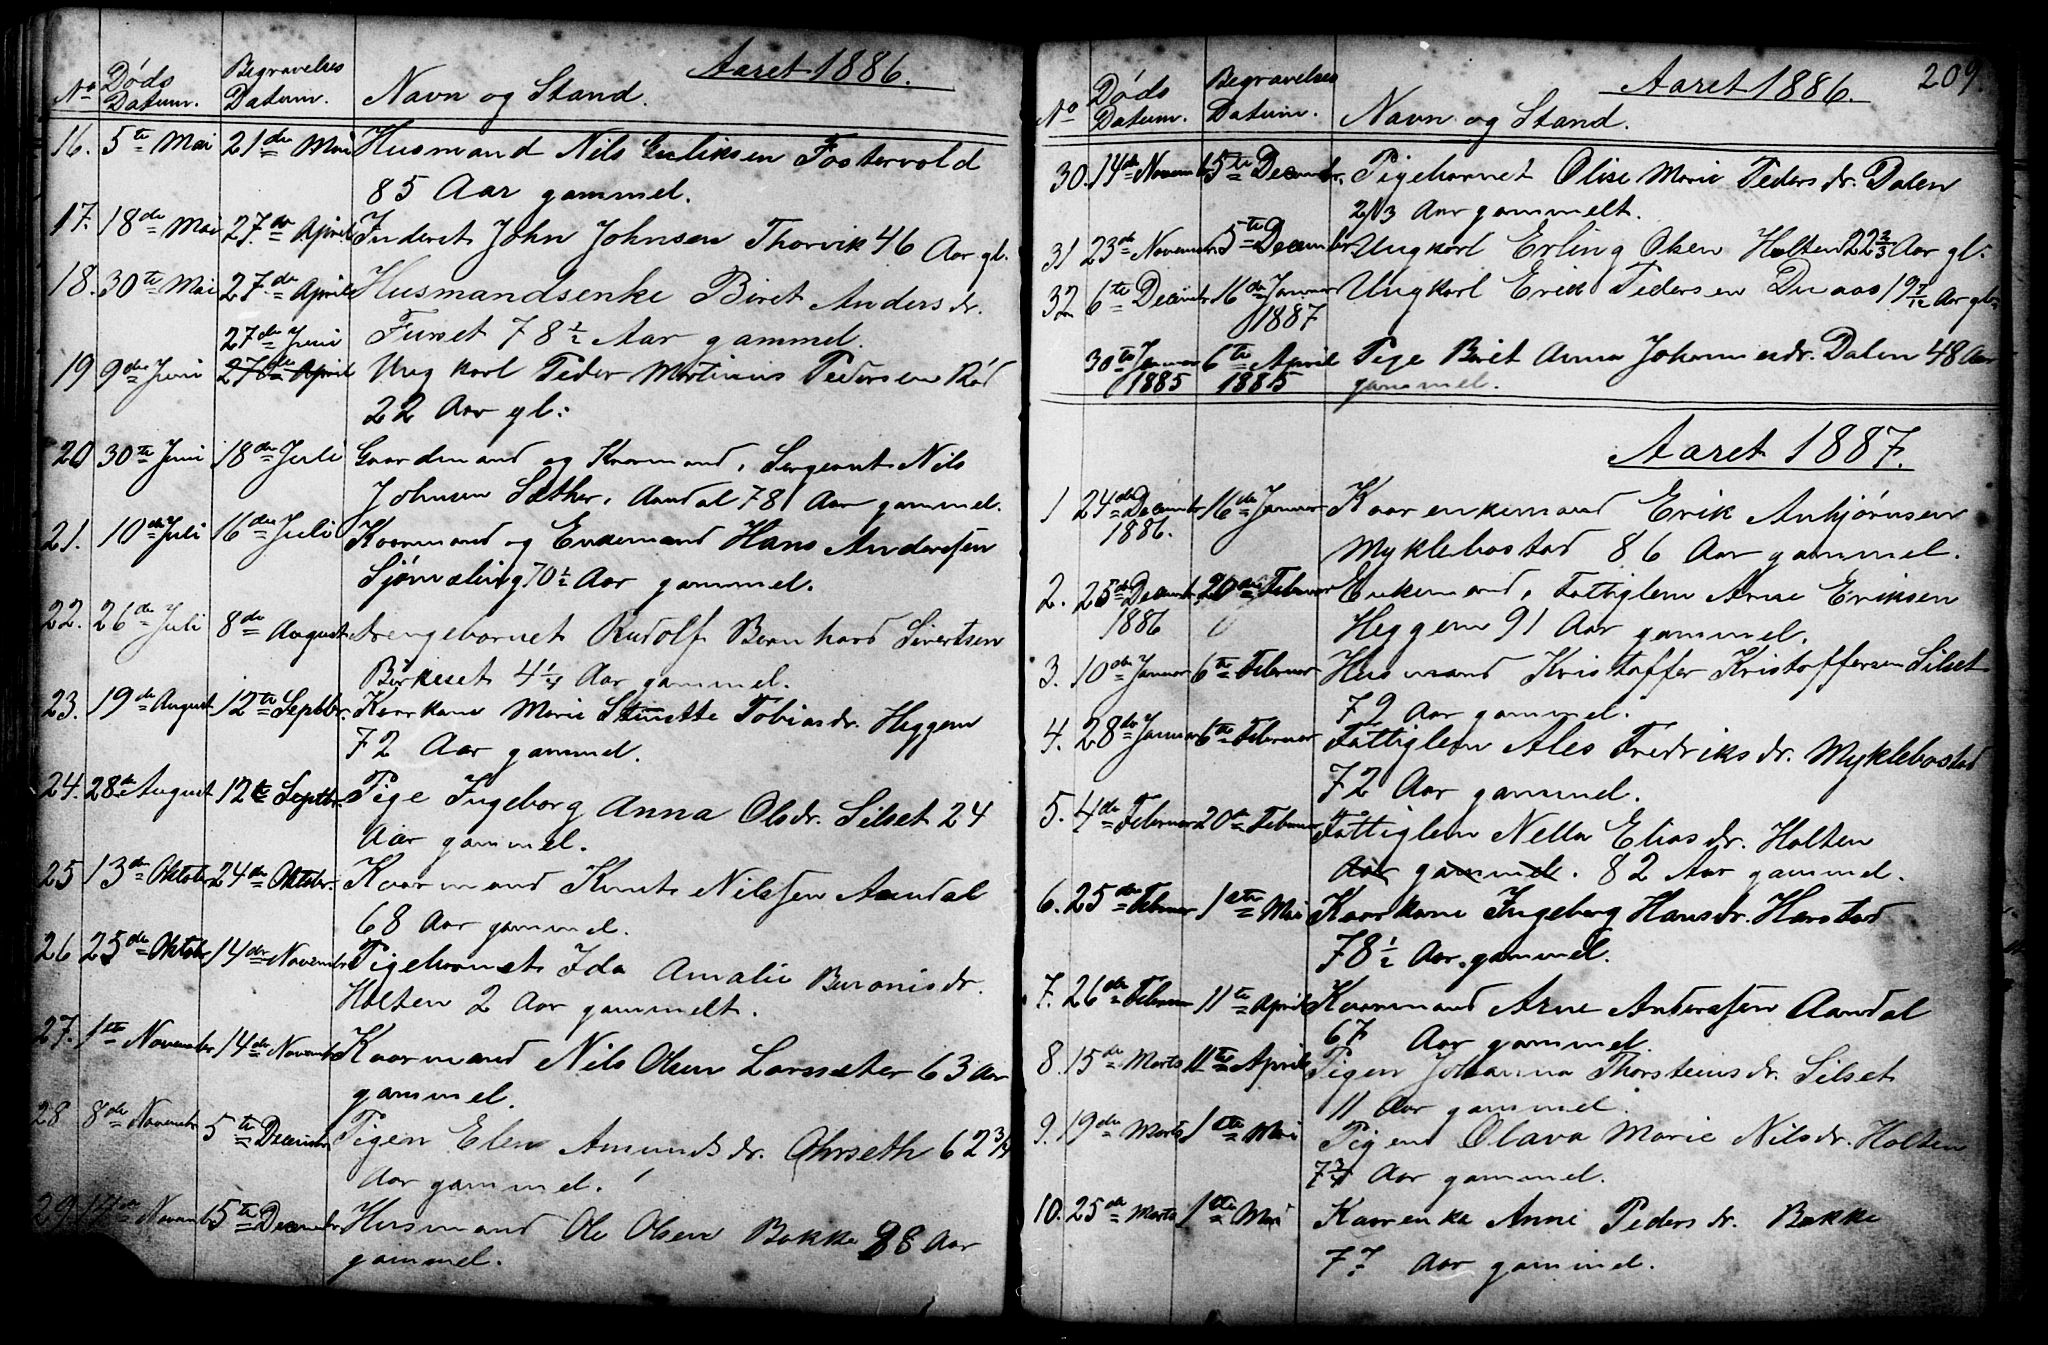 Aaret 1886.
No Døds Datum. Begravelses Datum. Navn og Stand.
16. 5te Mai 21de Mai Husmand Nils Eriksen Fostervold
85 Aar gammel.
17. 18de Mai 27de April Inderst John Johnsen Thorvik 46 Aar gl.
18. 30te Mai 27de April Husmandsenke Biret Andersdr.
Furset 78 1/2 Aar gammel.
27de Juni
19 9de Juni 27de April Ungkarl Peder Martinus Pedersen Rød
22 Aar gl:
20 30te Juni 18de Juli Gaardmand og Kaarmand, Sergeant Nils
Johnsen Sæther, Aandal 78 Aar gammel.
21. 10de Juli 16de Juli Kaarmand og Enkemand Hans Anderssen
Sjømæling 70 1/2 Aar gammel.
22. 26de Juli 8de August Drengebarnet Rudolf Bernhard Sivertsen
Birkeset 4 1/4 Aar gammel.
23. 19de August 12te Septbr. Kaarkone Marie Stinette Tobiasdr. Heggem
72 Aar gammel.
24. 28de August 12te Septbr. Pige Ingeborg Anna Olsdr. Silset 24
Aar gammel.
25 13de Oktober 24de Oktobr. Kaarmand Knut Nilssen Aandal
68 Aar gammel.
26 25de Oktobr 14de Novembr Pigebarnet Ida Amalie Buronisdr.
Holten 2 Aar gammelt.
27. 1ste November 14de Novembr Kaarmand Nils Olsen Larsæter 63 Aar
gammel.
28 8de Novembr 5te Decembr Pigen Elen Amundsdr. Ohrseth 62 3/4
Aar gammel.
29 14de Novembr 5te Decembr Husmand Ole Olsen Bakke 88 Aar
gammel.
Aaret 1886. 209.
No Døds Datum. Begravelses Datum. Navn og Stand.
30. 14de Novembr 5te Decembr. Pigebarnet Olise Marie Pedersdr. Dalen
2 1/3 Aar gammelt.
31 23de Novembr 5te December Ungkarl Erling Olsen Holten 22 2/3 Aar gl.
32 6te Decembr 16de Januar Ungkarl Erik Pedersen Duaas 19 7/12 Aar gl.
1887
30te Januar 6te April Pige Beret Anna Johannesdr. Dalen 48 Aar
1885 1885 gammel.
Aaret 1887.
1 24de December 16de Januar Kaarenkemand Erik Anbjørnsen
1886. Myklebostad 86 Aar gammel.
2. 25de Decembr 20de Februar Enkemand, Fattiglem Arne Eriksen
1886 Heggem 91 Aar gammel.
3. 10de Januar 6te Februar Husmand Kristoffer Kristoffersen Silset
79 Aar gammel.
4. 28de Januar 6te Februar Fattiglem Ales Fredriksdr. Myklebostad
72 Aar gammel.
5. 4de Februar 20de Februar Fattiglem Nella Eliasdr. Holten
Aar gammel. 82 Aar gammel.
6. 25de Februar 1ste Mai Kaarkone Ingeborg Hansdr. Harstad
78 1/2 Aar gammel.
7. 26de Februar 11te April Kaarmand Arne Anderssen Aandal
67 Aar gammel.
8. 15de Marts 11te April Pigen Johanna Thorsteinsdr. Silset
11 Aar gammel.
9. 19de Marts 1ste Mai Pigen Olava Marie Nilsdr. Holten
7 3/4 Aar gammel.
10. 25de Marts 1ste Mai Kaarenke Anne Pedersdr. Bakke
77 Aar gammel.